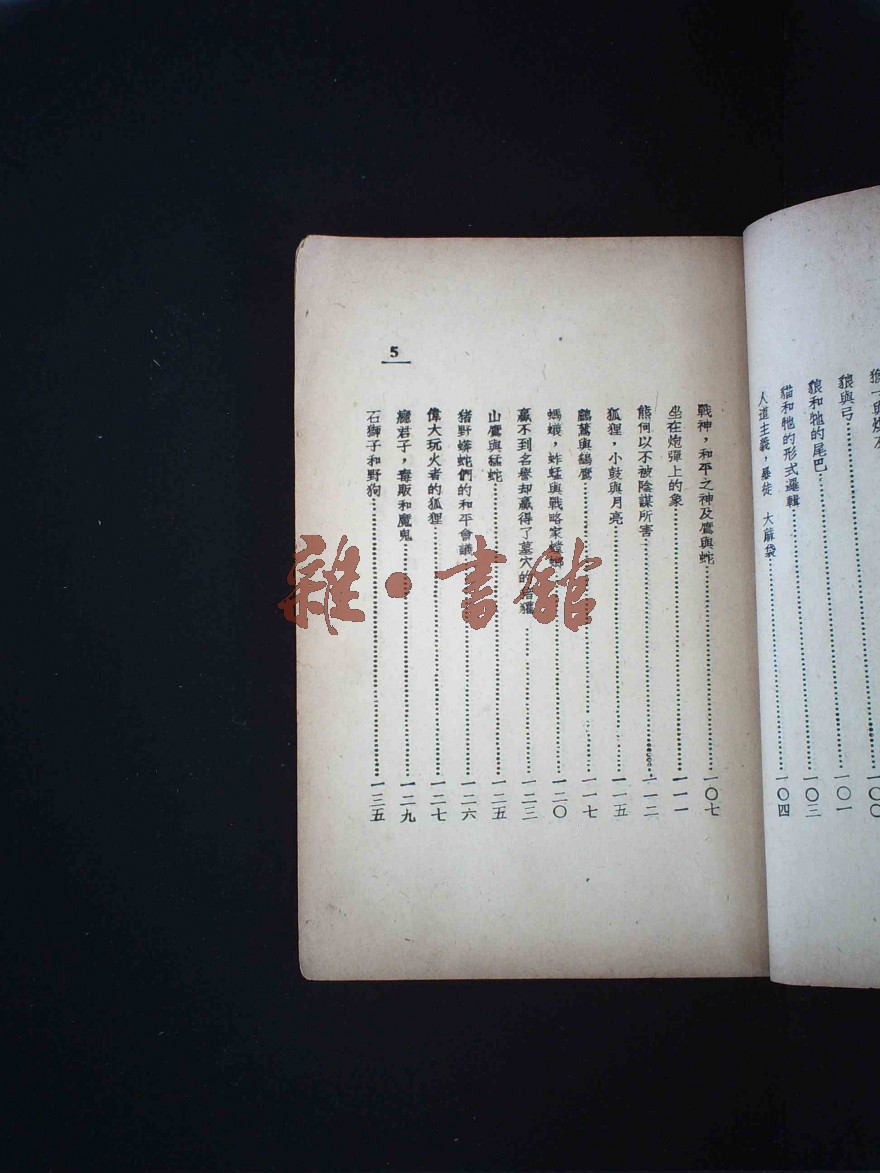 與
狼與弓……一〇一
狼和牠的尾巴……一〇三
貓和牠的形式邏輯……一〇四
人道主義，暴徒 大蔴袋
5
戰神，和平之神及鷹與蛇……一〇七
坐在炮彈上的象……一一一
熊何以不被陰謀所害……一一二
狐狸，小鼓與月亮……一一五
與鷂鷹……一一七
螞蟻，蚱蜢與戰略家螳螂……一二〇
贏不到名譽却贏得了墓穴的猪獾……一二三
山鷹與猛蛇……一二五
猪野蟒蛇們的和平會議……一二六
偉大玩火者的狐狸……一二七
君子，毒販和魔鬼……一二九
石獅子和野狗……一三五
雜·書館